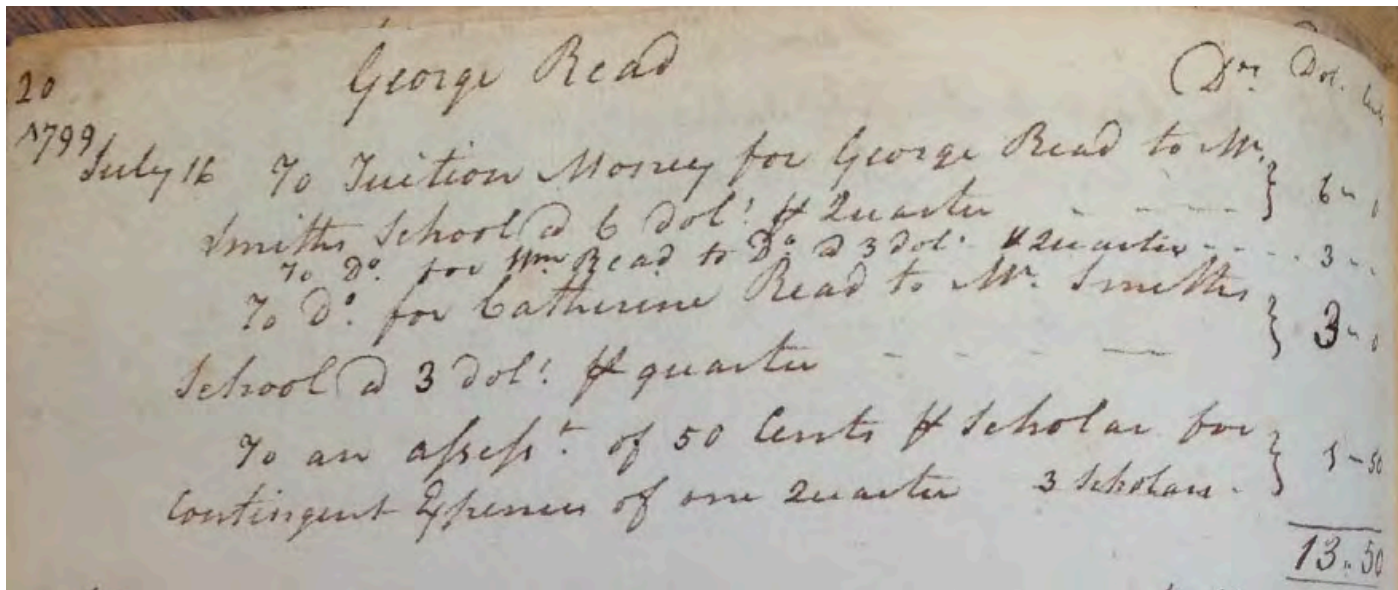 20 George Read Drs. Dol. Cents
1799
July 16 To Tuition Money for George Read to Mr.
Smiths School @ 6 dols. ⅌ Quarter - - - - } 6 " 0
To Do. for Wm. Read to Do. @ 3 dols. ⅌ Quarter - - - 3 - -
To Do. for Catherine Read to Mr. Smiths
School @ 3 dols. ⅌ quarter - - - - } 3 " 0
To an aſseſst. of 50 Cents ⅌ Scholar for
Contingent Expences of one Quarter 3 Scholars - } 1 - 50
13 " 50